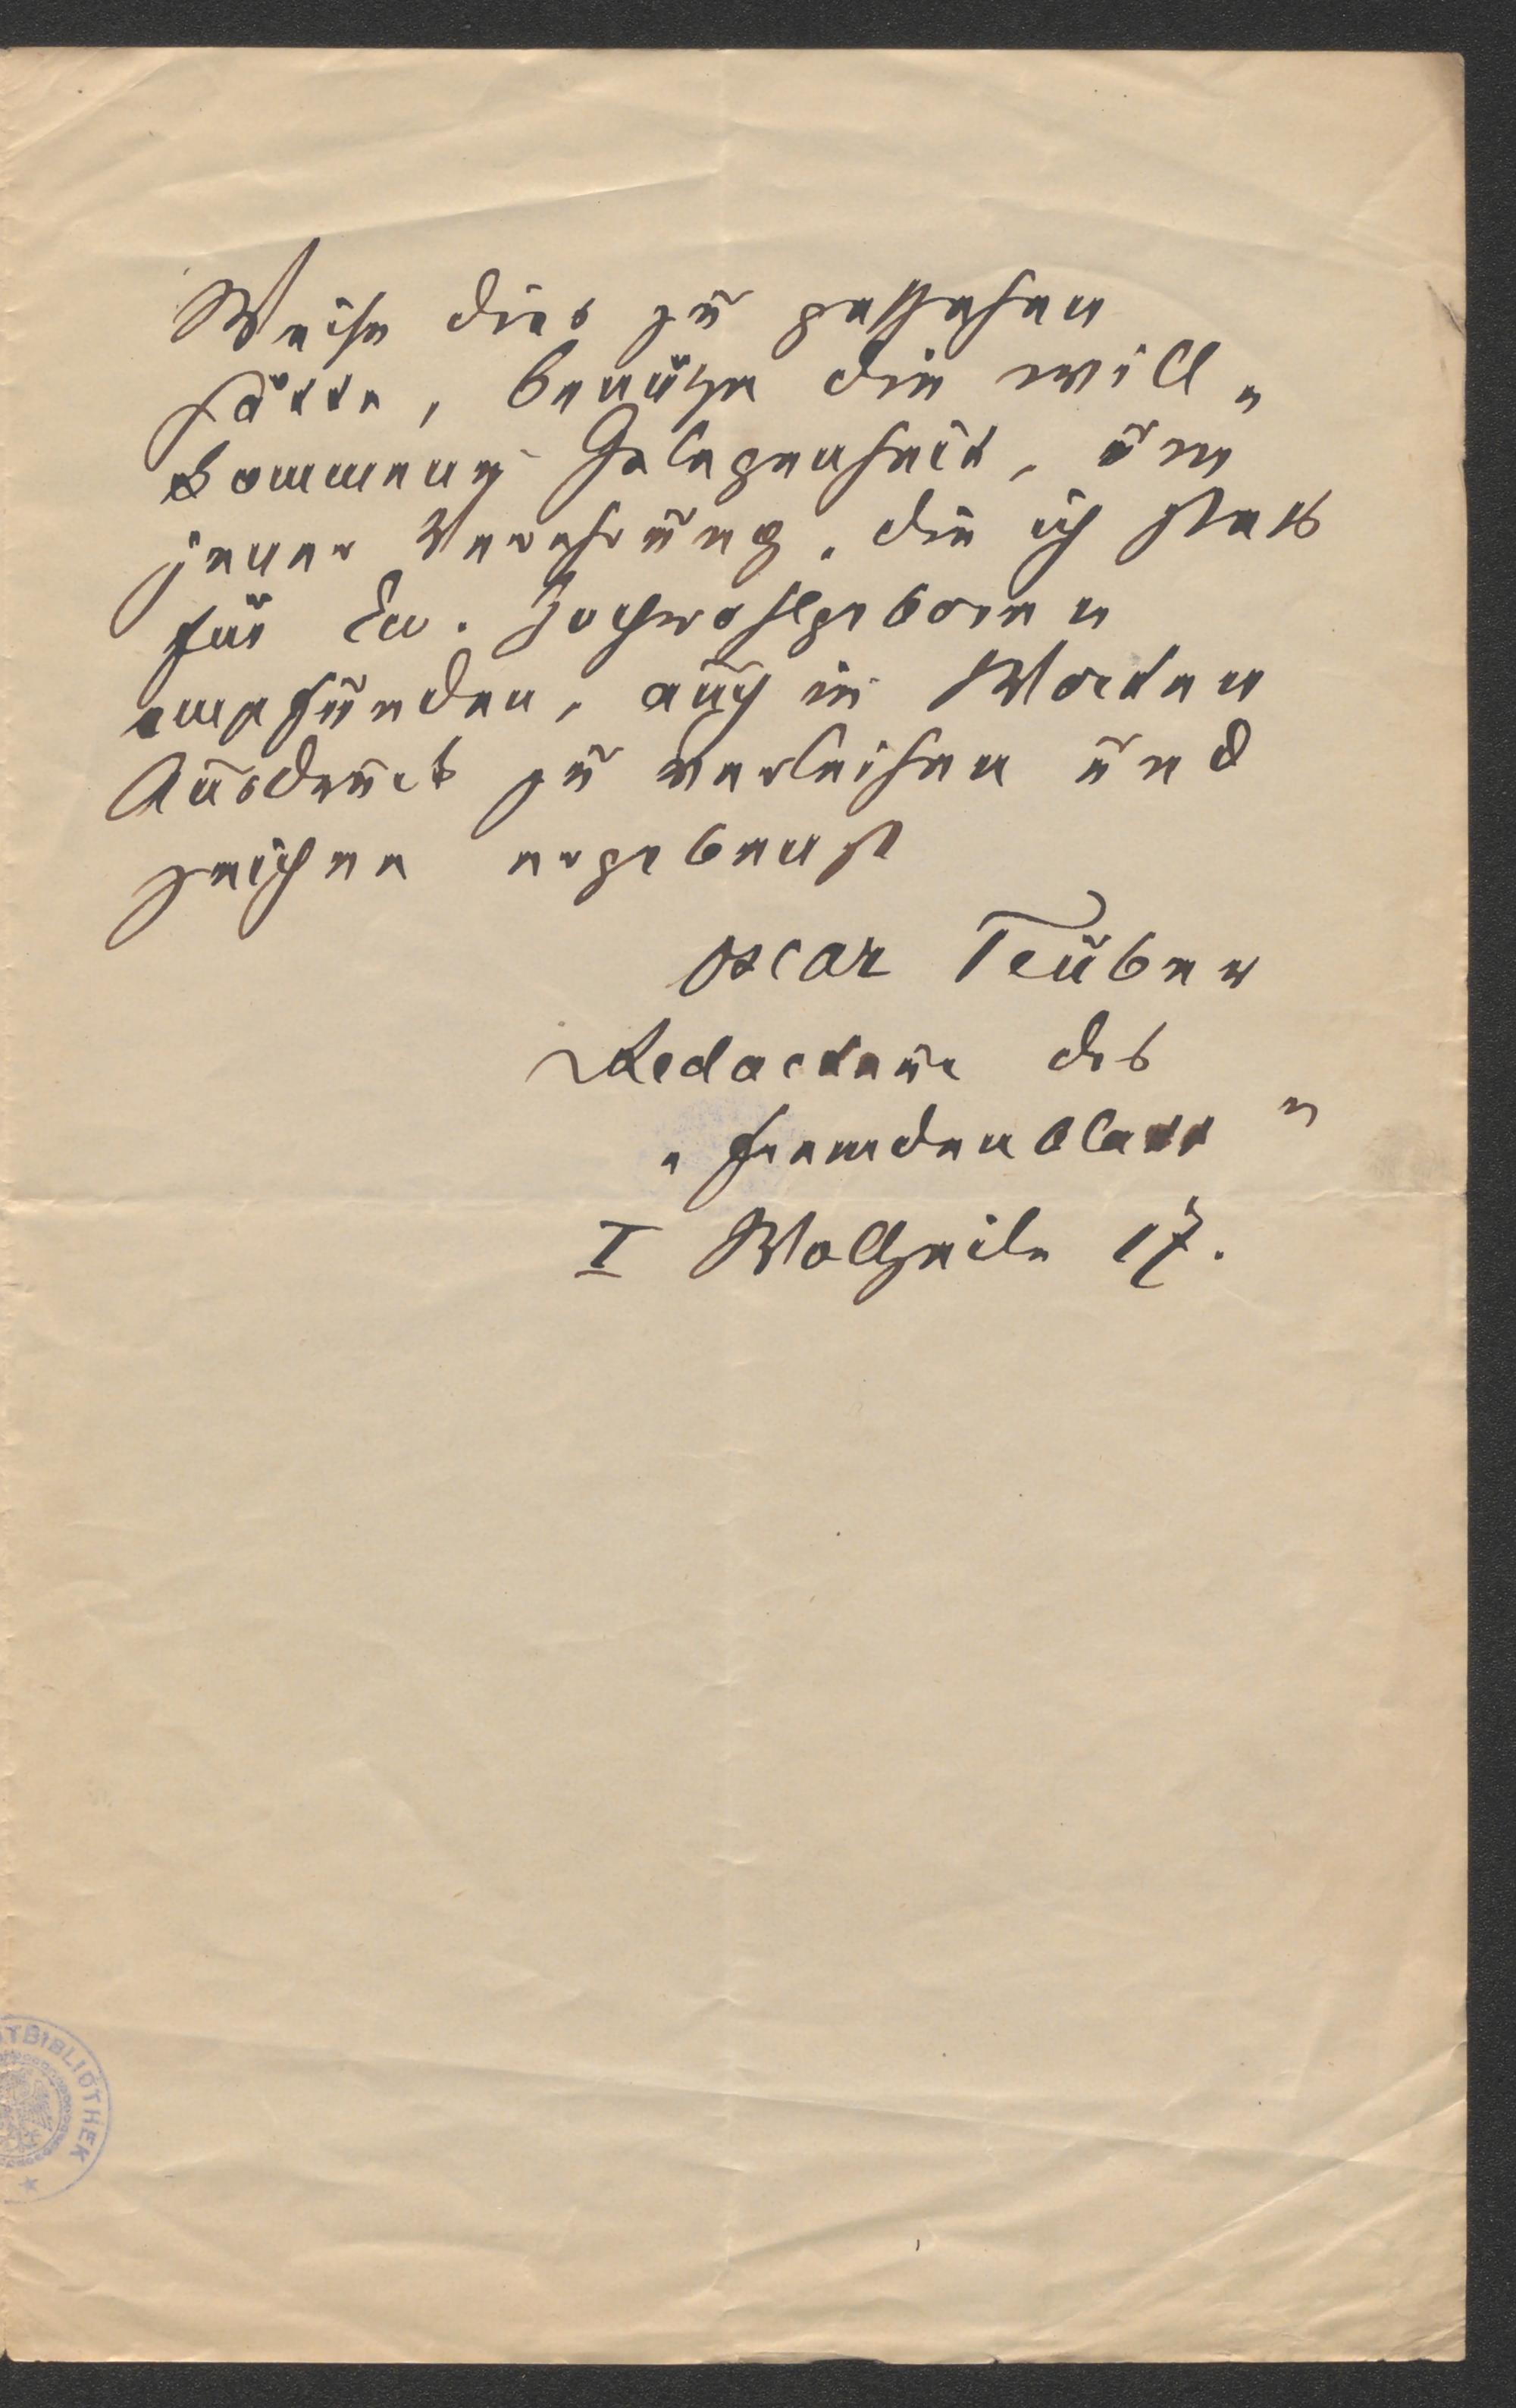 Weise dies zu geschehen
hätte, benütze die will„
kommene Gelegenheit, um
jener Verehrung, die ich stets
für Ew. Hochwohlgeboren
empfunden, auch in Worten
Ausdruck zu verleihen und
zeichne ergebenst
Oscar Teuber
Redacteur des
„Fremdenblatt"
I Wollzeile 17.
TBIBLIOTHEK